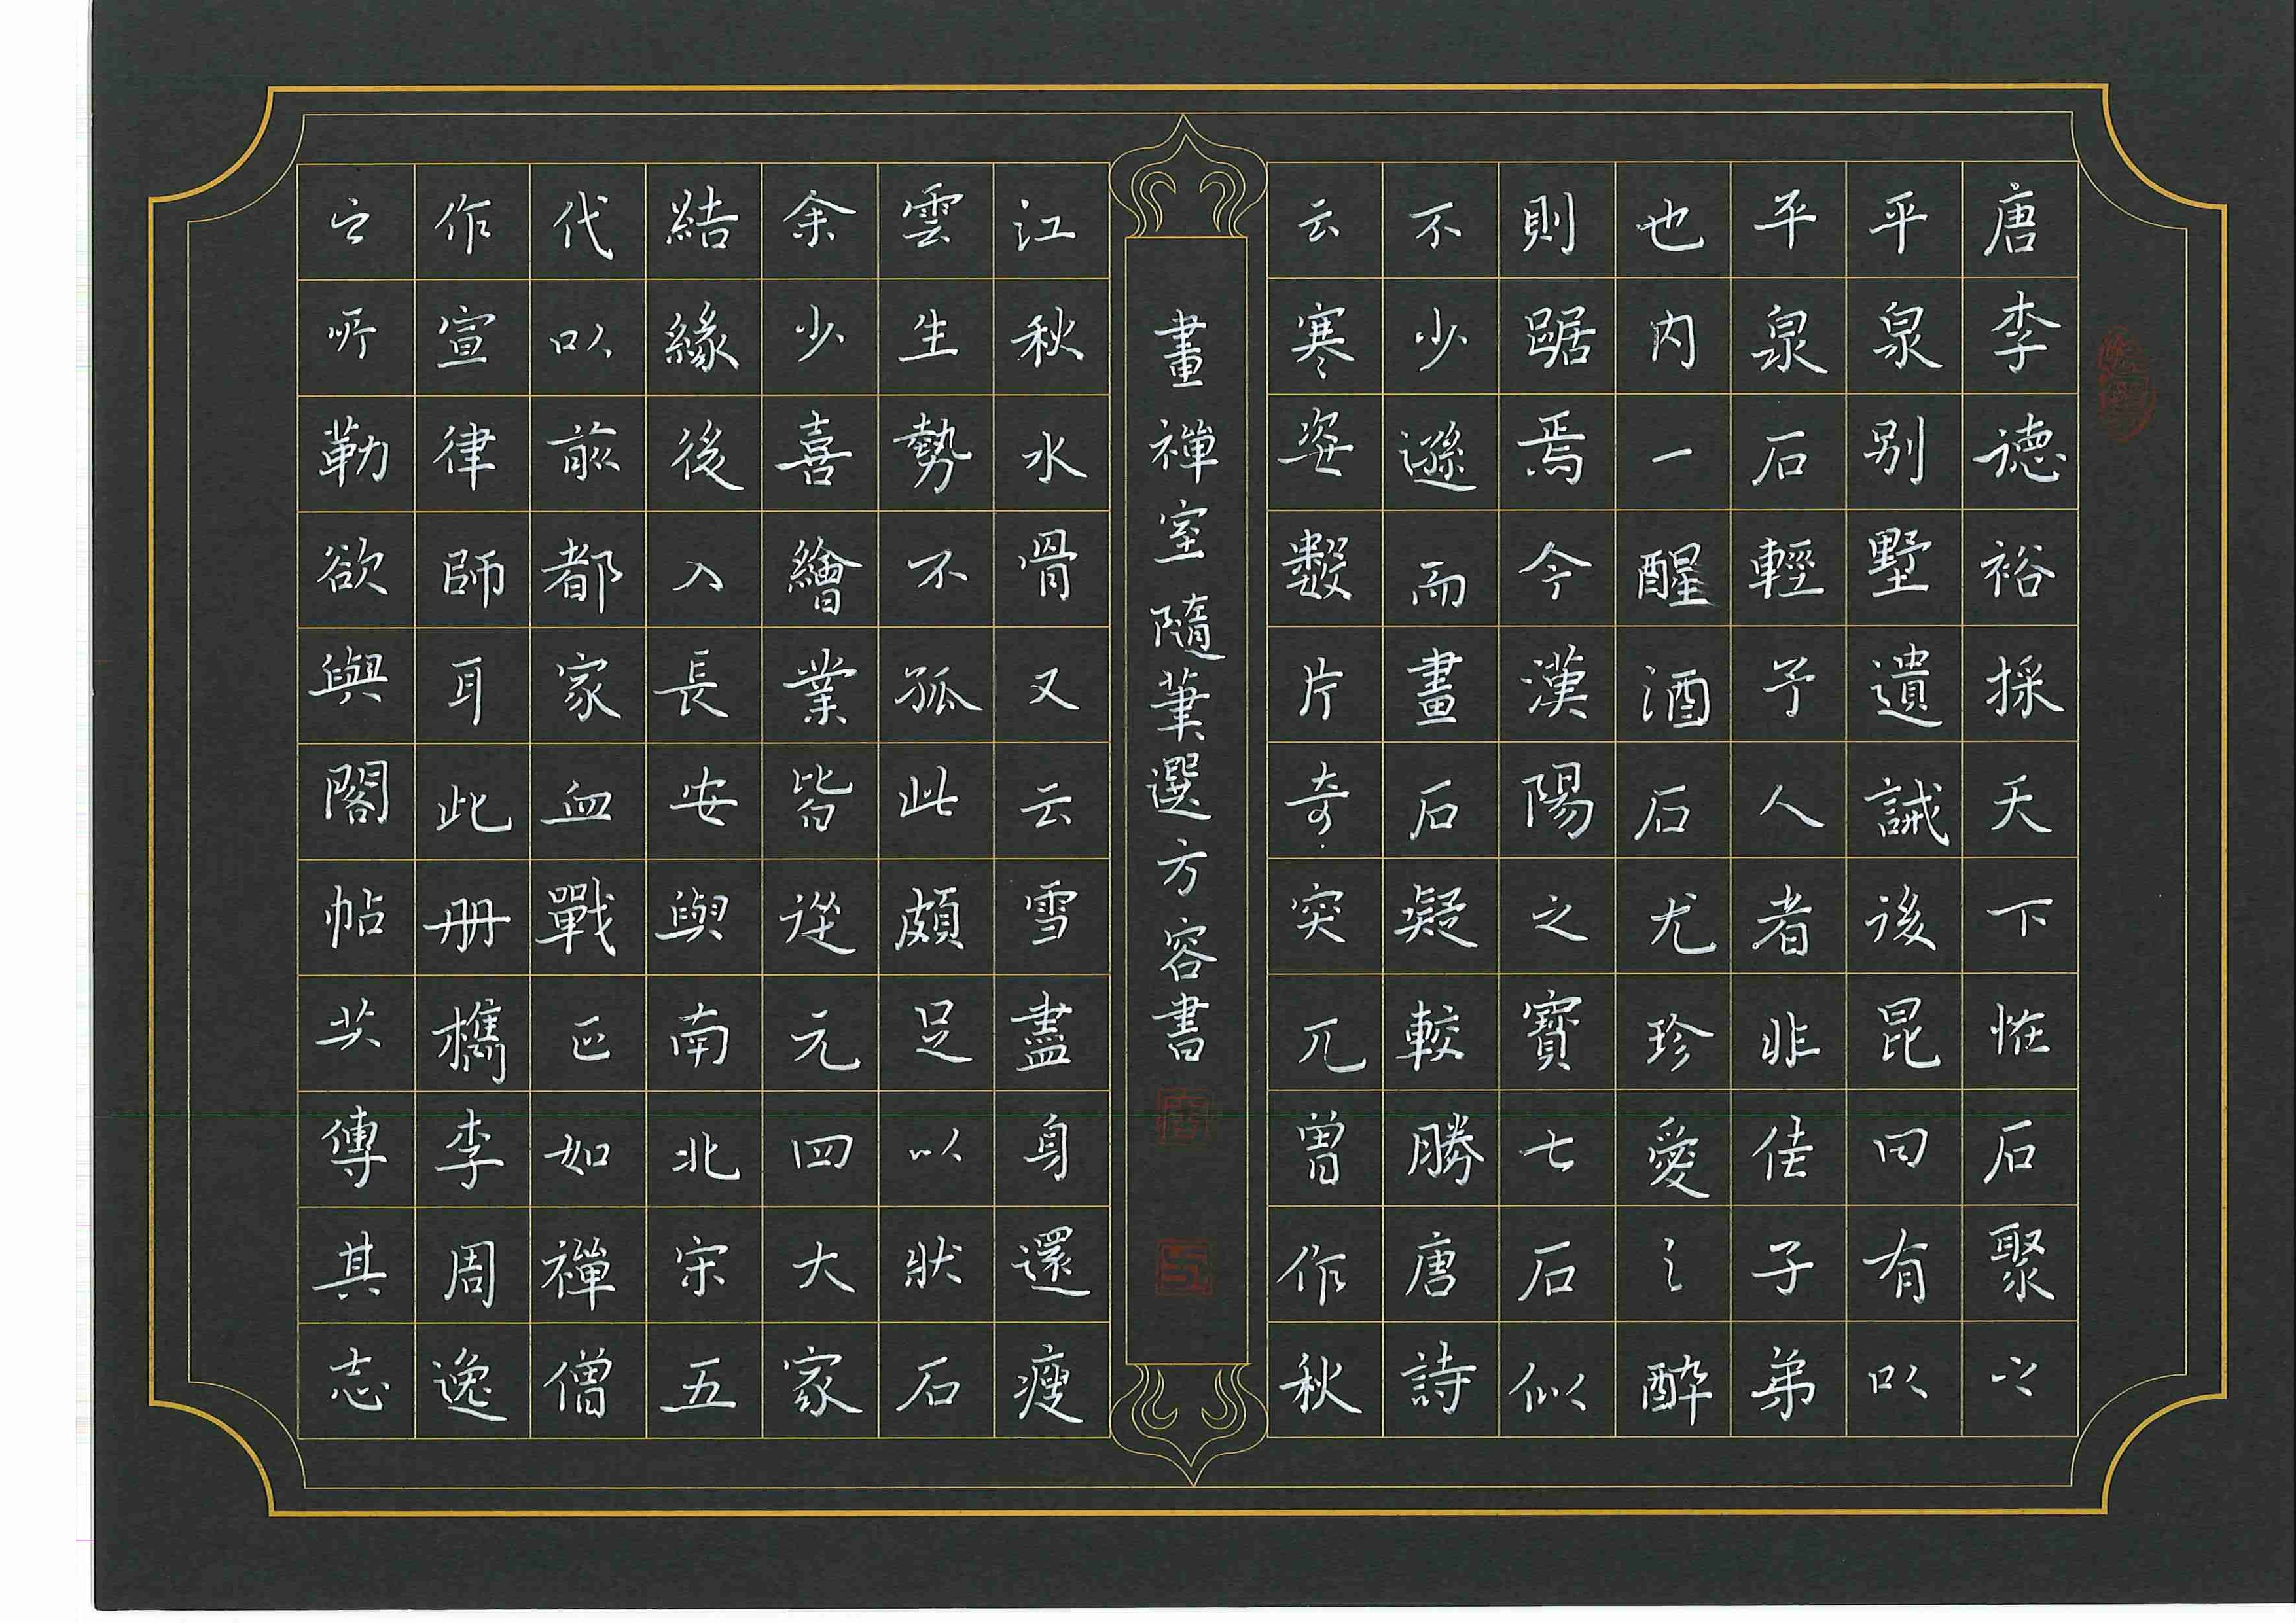 唐李德裕採天下恠石聚之
平泉別墅遺誡後昆曰有以
平泉石輕予人者非佳子弟
也内一醒酒石尤珍愛之醉
則踞焉今漢陽之寶七石似
不少遜而畫石凝較勝唐詩
云寒姿數片奇突兀曾作秋
畫禪室隨筆選方容書
江秋水骨又云雪盡身還瘦
雲生勢不孤此頗足以狀石
余少喜繪業皆從元四大家
結緣後入長安與南北宋五
代以前都家血戰正如禪僧
作宣律師耳此册檇李周逸
之所勒欲與閣帖共傳其志